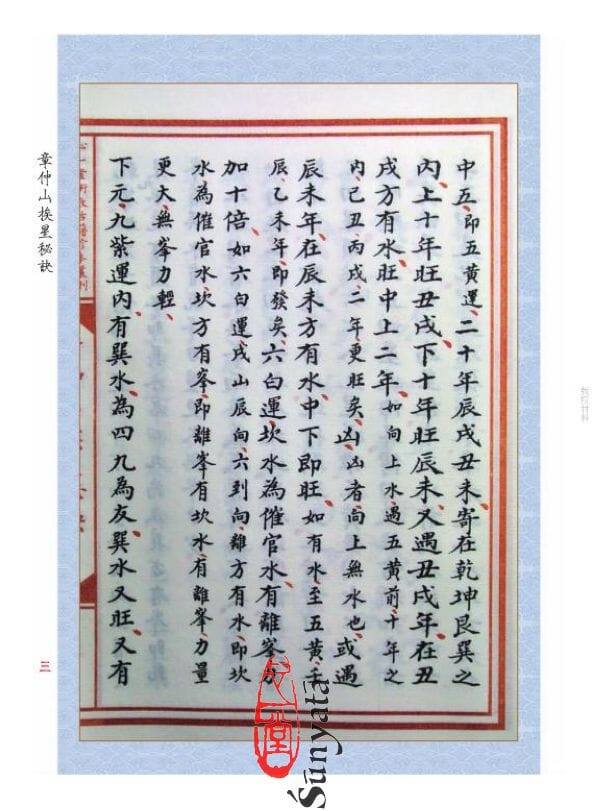 中五、即五黃運、二十年辰戌丑未、寄在乾坤艮巽之
內、上十年旺丑戌、下十年旺辰未、又遇丑戌年、在丑
戌方有水、旺中上二年、如向上水、遇五黃前、十年之
內、己丑丙戌、二年更旺矣、凶、凶者向上無水也、或遇
辰未年、在辰未方有水、中下即旺、如有水、至五黃、壬
辰、乙未年、即發矣、六白運、坎水為催官水、有離峯力
加十倍、如六白運、戌山辰向、六到向、離方有水、即坎
水為催官水、坎方有峯、即離峯有坎水、有離峯力量
更大、無峯力輕、
下元、九紫運內、有巽水、為四九為友、巽水又旺、又有
章仲山挨星秘訣
三
心一堂
Śūnyatā